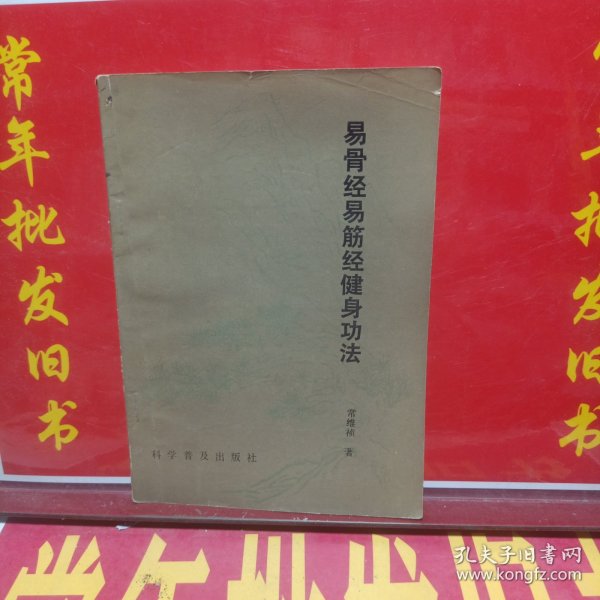 常年批发旧书
易骨经易筋经健身功法
常维祯 著
科学普及出版社
批发旧书
常年批发旧书
孔夫子旧书网
www.kongfz.com